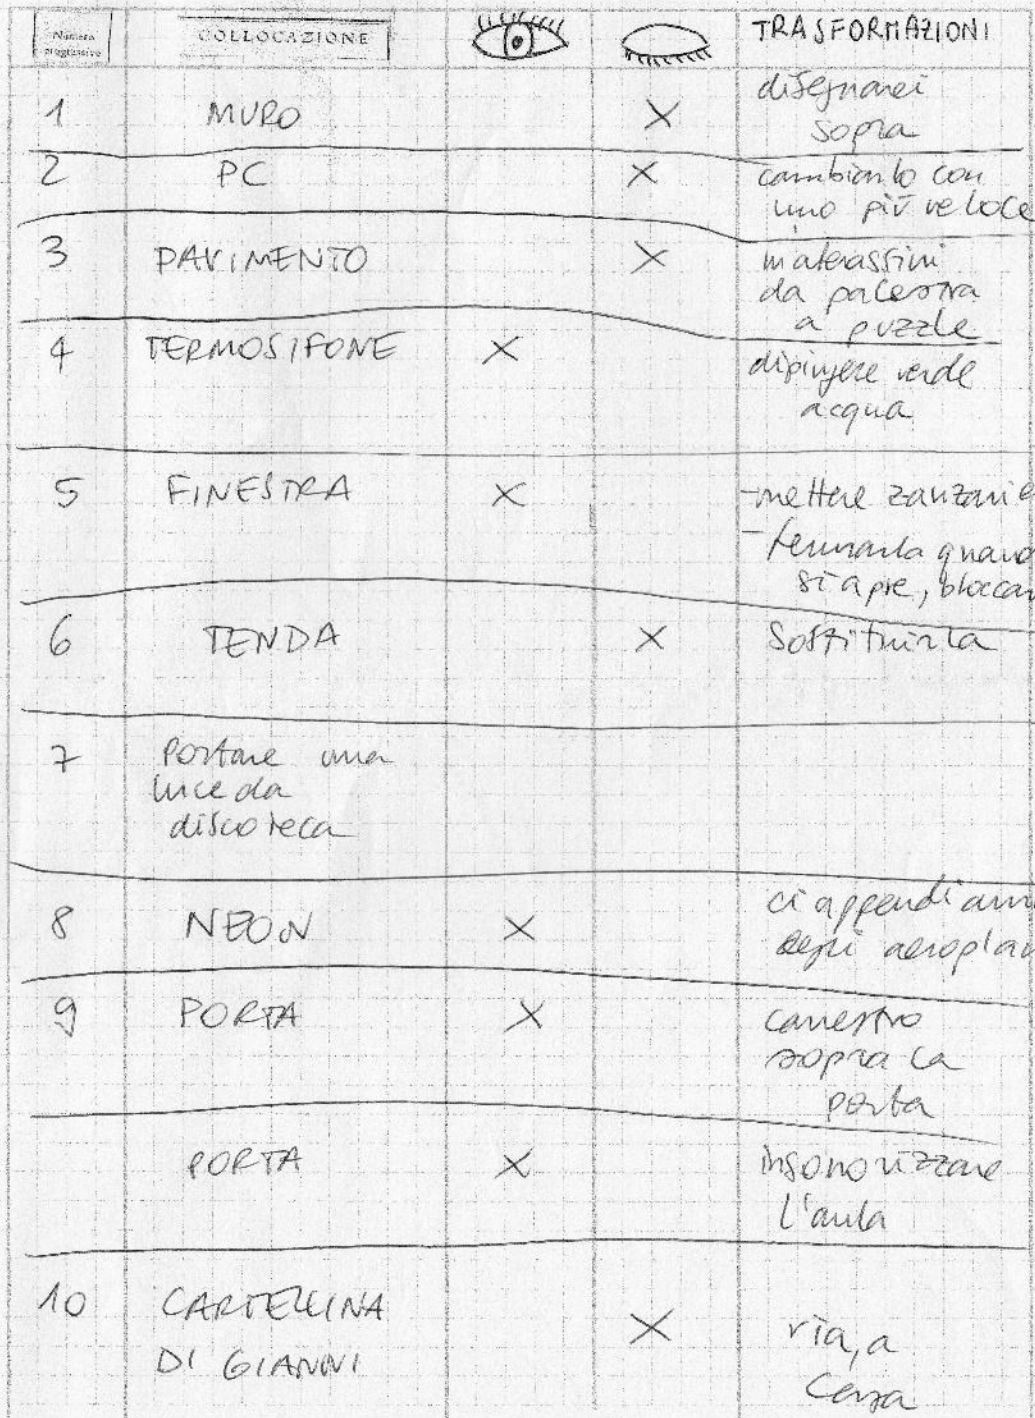 Numero
progressivo
COLLOCAZIONE
TRASFORMAZIONI
1 MURO X disegnarci
sopra
2 PC X cambiarlo con
uno più veloce
3 PAVIMENTO X materassini
da palestra
a puzzle
4 TERMOSIFONE X dipingere verde
acqua
5 FINESTRA X -mettere
- fermarla
si apre,
6 TENDA X sostituirla
7 Portare una
luce da
discoteca
8 NEON X ci
degli
9 PORTA X canestro
sopra la
porta
PORTA X insonorizzare
l'aula
10 CARTELLINA X via, a
DI GIANNI casa